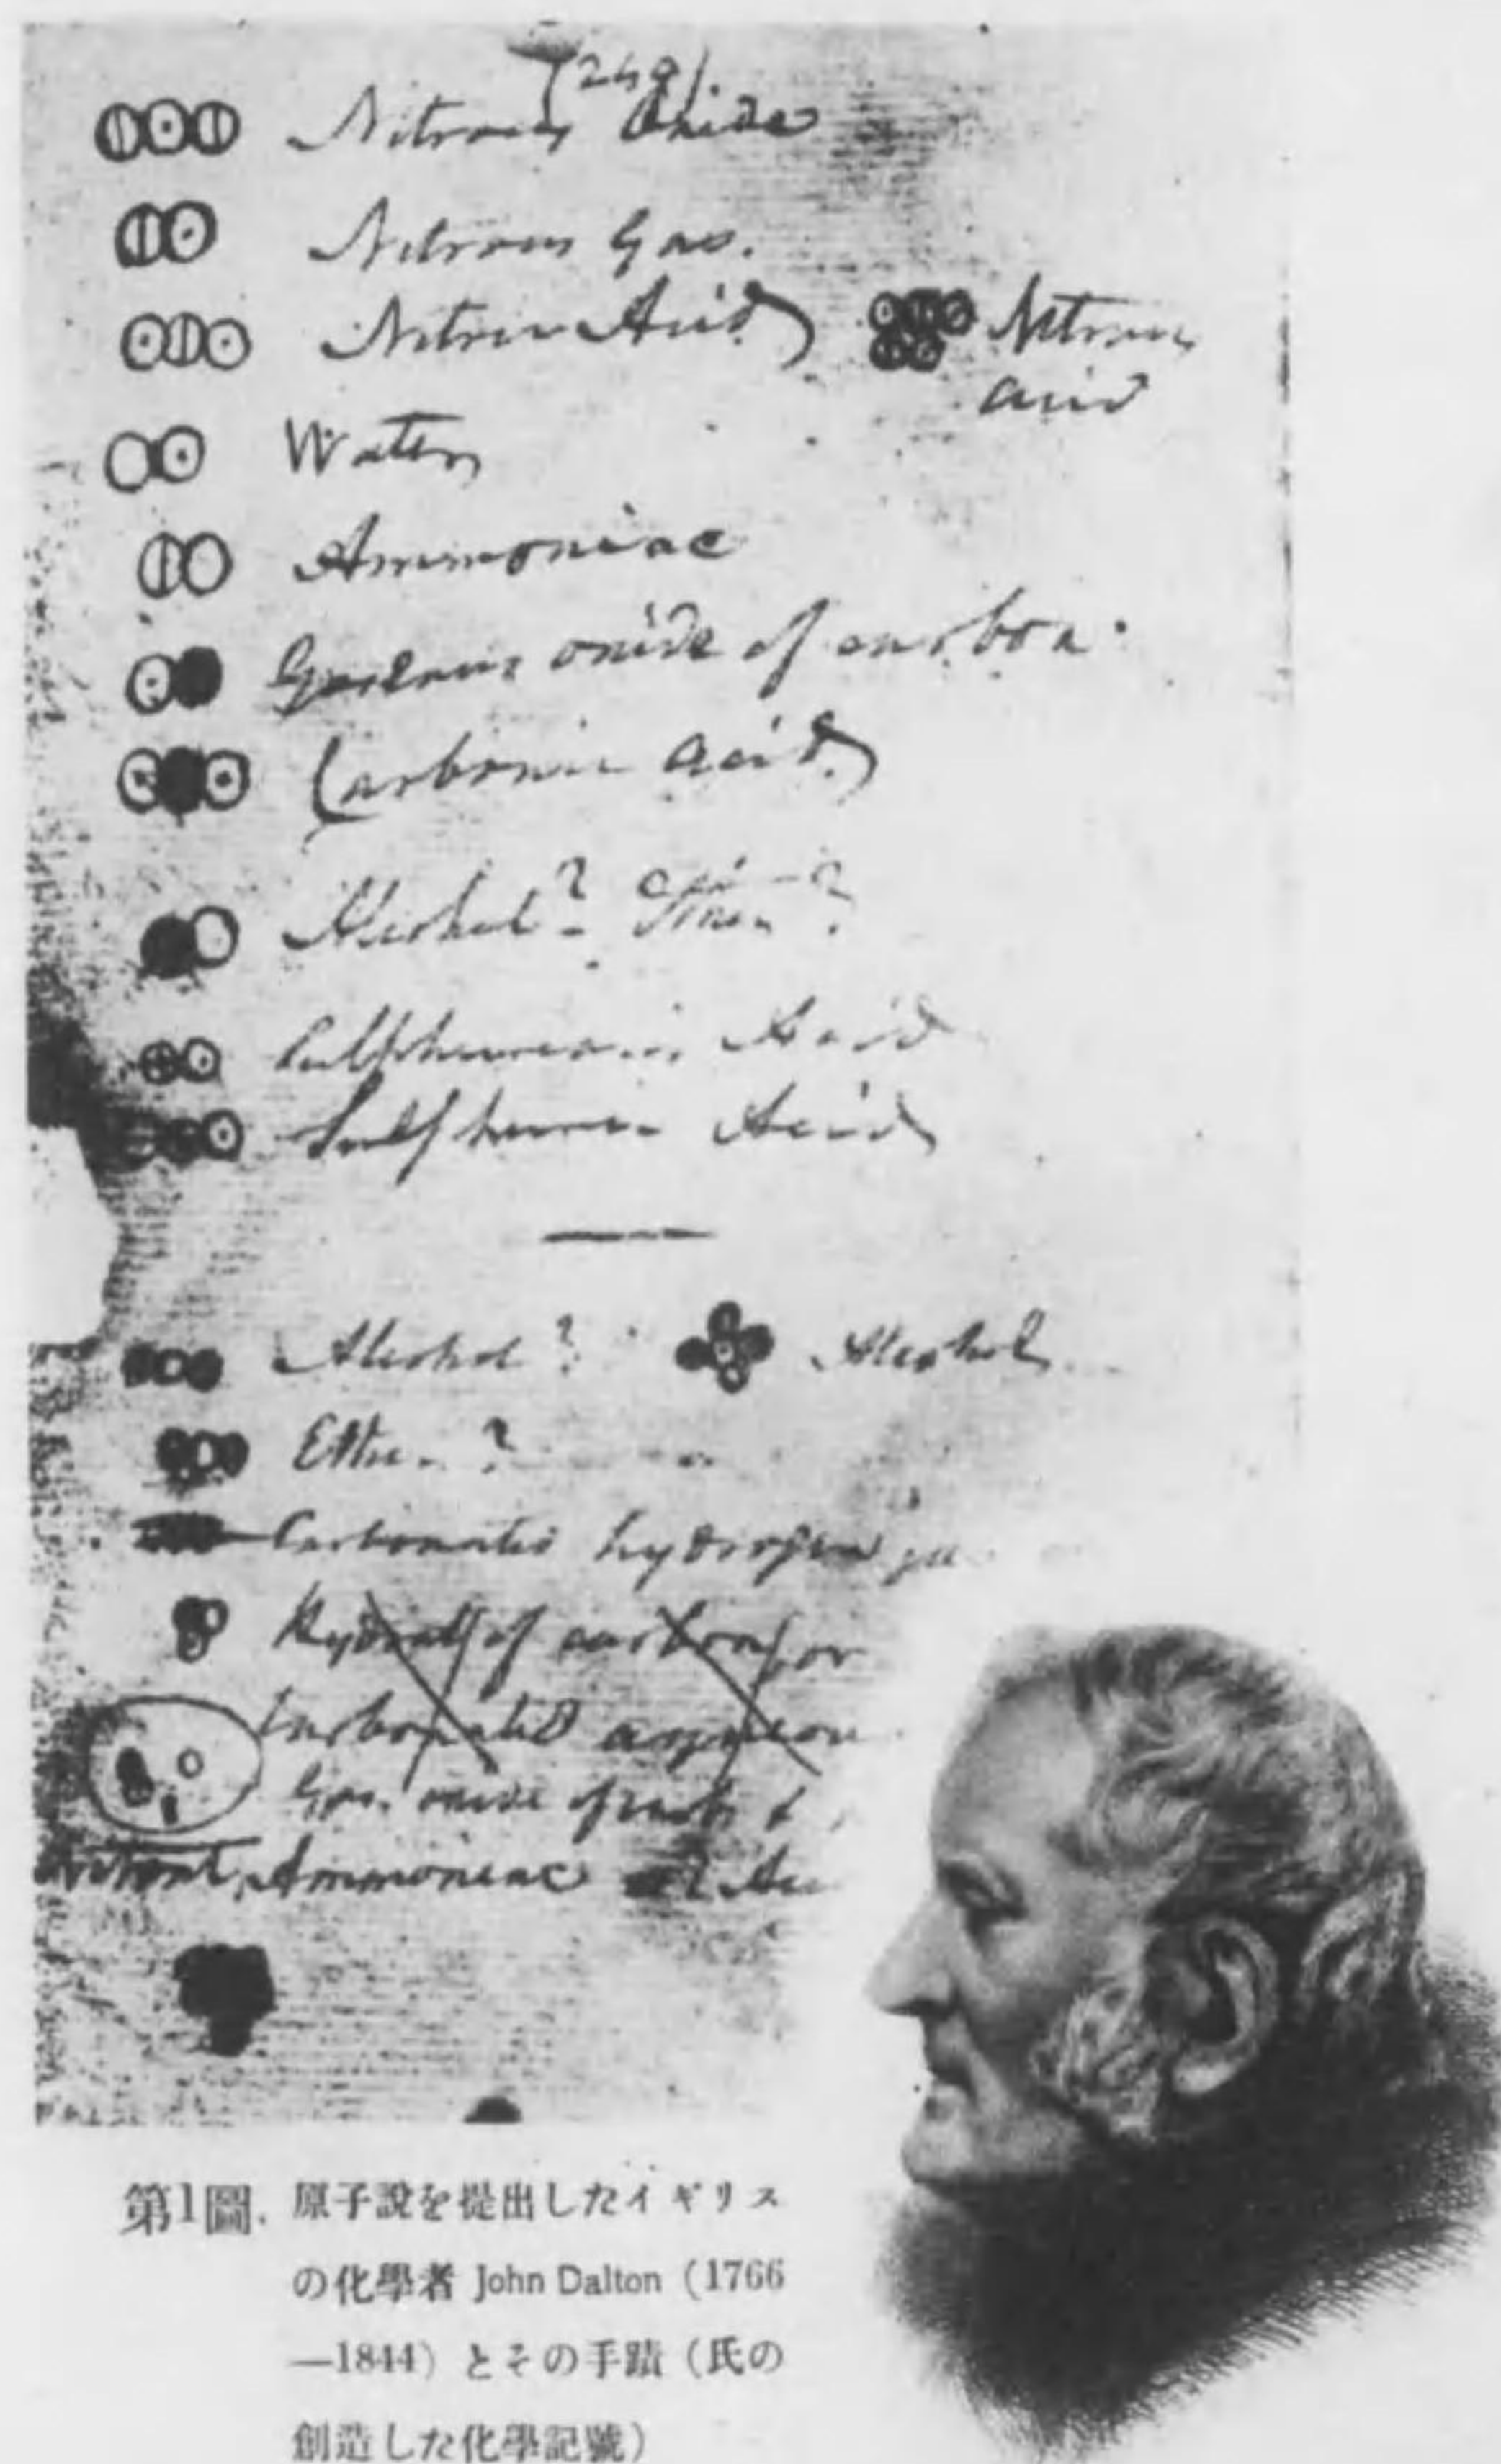 (248)
Nitrous Oxide
Nitrous Gas.
Nitric Acid
Nitrous
acid
Water
Ammoniac
Gaseous oxide of carbon.
Carbonic acid.
Alcohol? Ether?
Sulphureous Acid
Sulphuric Acid
Alcohol? Alcohol
Ether ?
Carbonated hydrogen
Hydrat of carbon, or
Carbonated
Gas. oxide of
Ammoniac
第1圖. 原子說を提出したイギリス
の化學者 John Dalton (1766
—1844) とその手蹟 (氏の
創造した化學記號)